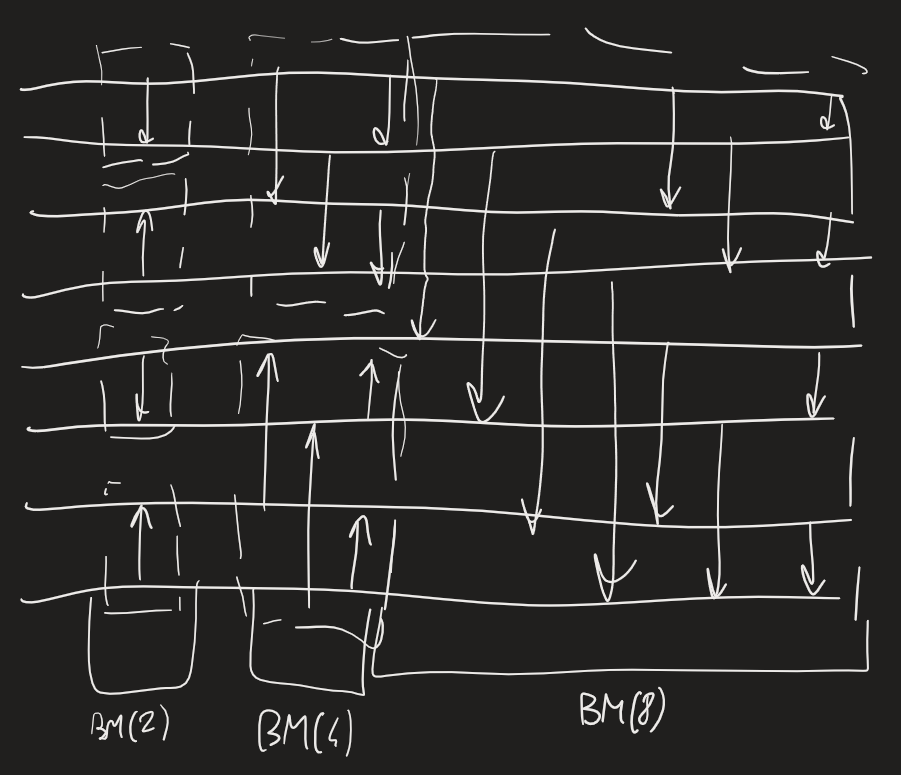 BM(2)
BM(4)
BM(8)